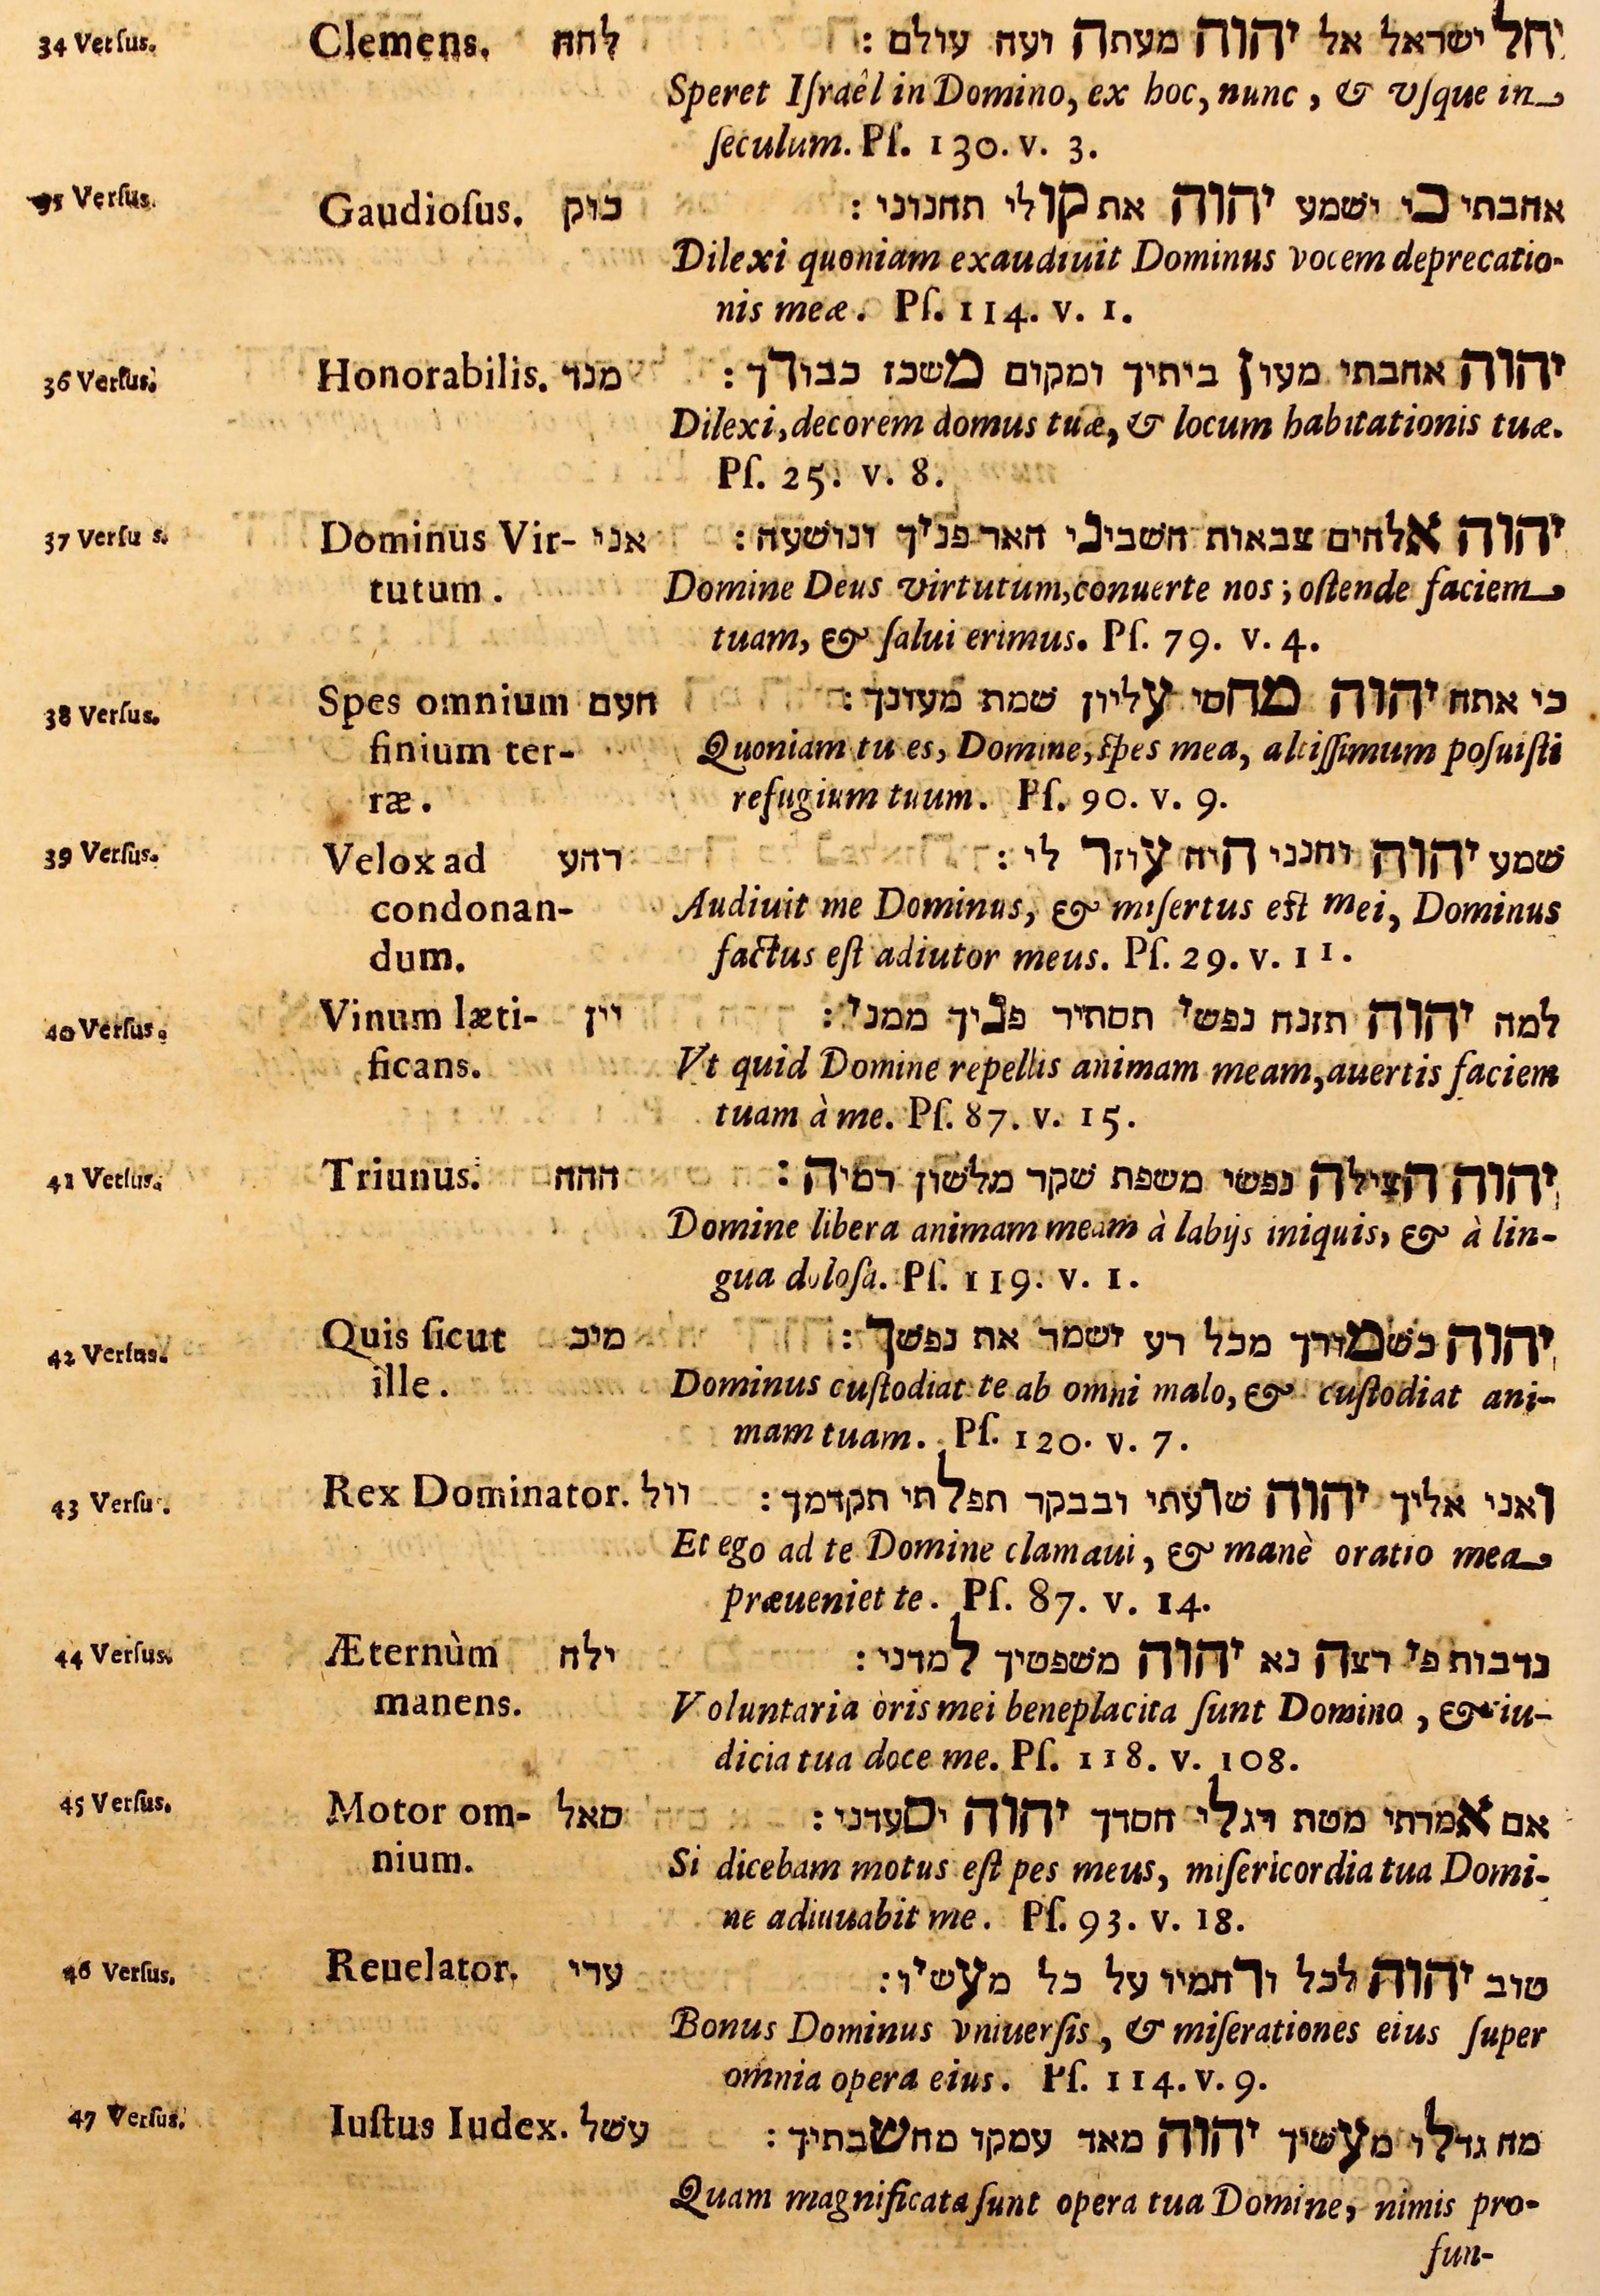 34 Versus. Clemens. לחח יחל ישראל אל יהוה מעתה ועח עולם :
Speret Iſraêl in Domino, ex hoc, nunc, & vſque in
ſeculum. Pſ. 130. v. 3.
35 Verſus. Gaudioſus. כוק אהבתי כי ישמע יהוה את קולי תחנוני :
Dilexi quoniam exaudiuit Dominus vocem deprecatio-
nis meæ. Pſ. 114. v. 1.
36 Verſus. Honorabilis. מנד יהוה אחבתי מעון ביתיך ומקום משכז כבודך :
Dilexi, decorem domus tuæ, & locum habitationis tuæ.
Pſ. 25. v. 8.
37 Verſus. Dominus Vir- אני יהוה אלהים צבאות חשביני האר פניך ונושעה :
tutum. Domine Deus virtutum, conuerte nos; oſtende faciem
tuam, & ſalui erimus. Pſ. 79. v. 4.
38 Verſus. Spes omnium חעם כי אתה יהוה מחסי עליון שמת מעונך :
finium ter- Quoniam tu es, Domine, ſpes mea, altiſſimum poſuiſti
ræ. refugium tuum. Pſ. 90. v. 9.
39 Verſus. Velox ad רהע שמע יהוה וחנני היה עוזר לי :
condonan- Audiuit me Dominus, & miſertus eſt mei, Dominus
dum. factus eſt adiutor meus. Pſ. 29. v. 11.
40 Verſus. Vinum læti- יין למה יהוה תזנח נפשי תסתיר פניך ממני :
ficans. Vt quid Domine repellis animam meam, auertis faciem
tuam à me. Pſ. 87. v. 15.
41 Verſus. Triunus. ההה יהוה הצילה נפשי משפת שקר מלשון רמיה :
Domine libera animam meam à labijs iniquis, & à lin-
gua doloſa. Pſ. 119. v. 1.
42 Verſus. Quis ſicut מיכ יהוה כשמורך מכל רע ישמר את נפשך :
ille. Dominus cuſtodiat te ab omni malo, & cuſtodiat ani-
mam tuam. Pſ. 120. v. 7.
43 Verſus. Rex Dominator. וול ואני אליך יהוה שועתי ובבקר תפלתי תקדמך :
Et ego ad te Domine clamaui, & manè oratio mea
præueniet te. Pſ. 87. v. 14.
44 Verſus. Æternùm ילח נדבות פי רצה נא יהוה משפטיך למדני :
manens. Voluntaria oris mei beneplacita ſunt Domino, & iu-
dicia tua doce me. Pſ. 118. v. 108.
45 Verſus. Motor om- סאל אם אמרתי מטת רגלי חסדך יהוה יסעדני :
nium. Si dicebam motus eſt pes meus, miſericordia tua Domi-
ne adiuuabit me. Pſ. 93. v. 18.
46 Verſus. Reuelator. ערי טוב יהוה לכל ורחמיו על כל מעשיו :
Bonus Dominus vniuerſis, & miſerationes eius ſuper
omnia opera eius. Pſ. 114. v. 9.
47 Verſus. Iuſtus Iudex. עשל מח גדלו מעשיך יהוה מאד עמקו מחשבתיך :
Quam magnificata ſunt opera tua Domine, nimis pro-
fun-